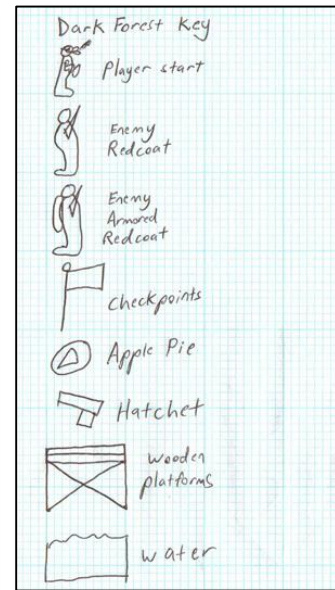 Dark Forest Key
Player start
Enemy
Redcoat
Enemy
Armored
Redcoat
Checkpoints
Apple Pie
Hatchet
Wooden
platforms
water